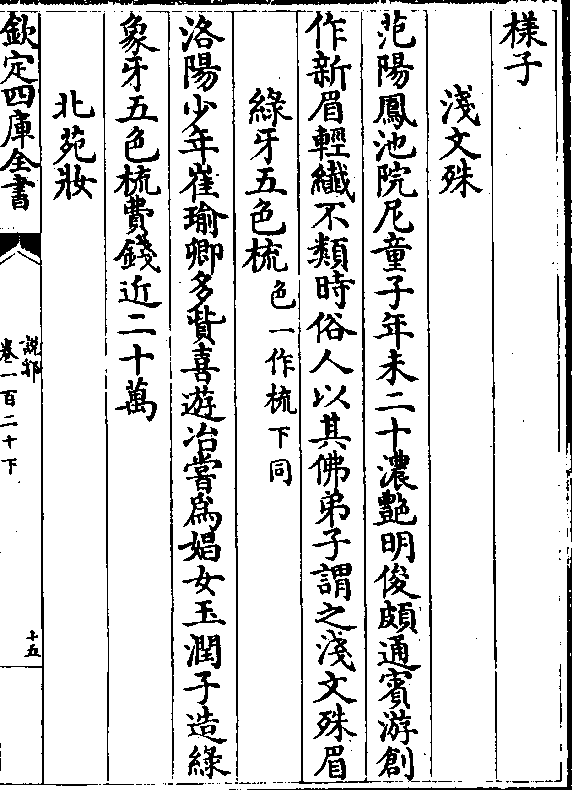 樣子
淺文殊
范陽鳳池院尼童子年未二十濃艷明俊頗通賓游創
作新眉輕纖不類時俗人以其佛弟子謂之淺文殊眉
綠牙五色梳色一作梳下同
洛陽少年崔瑜卿多貲喜遊冶嘗為娼女玉潤子造綠
象牙五色梳費錢近二十萬
北苑妝
欽定四庫全書
說郛
卷一百二十下
十五